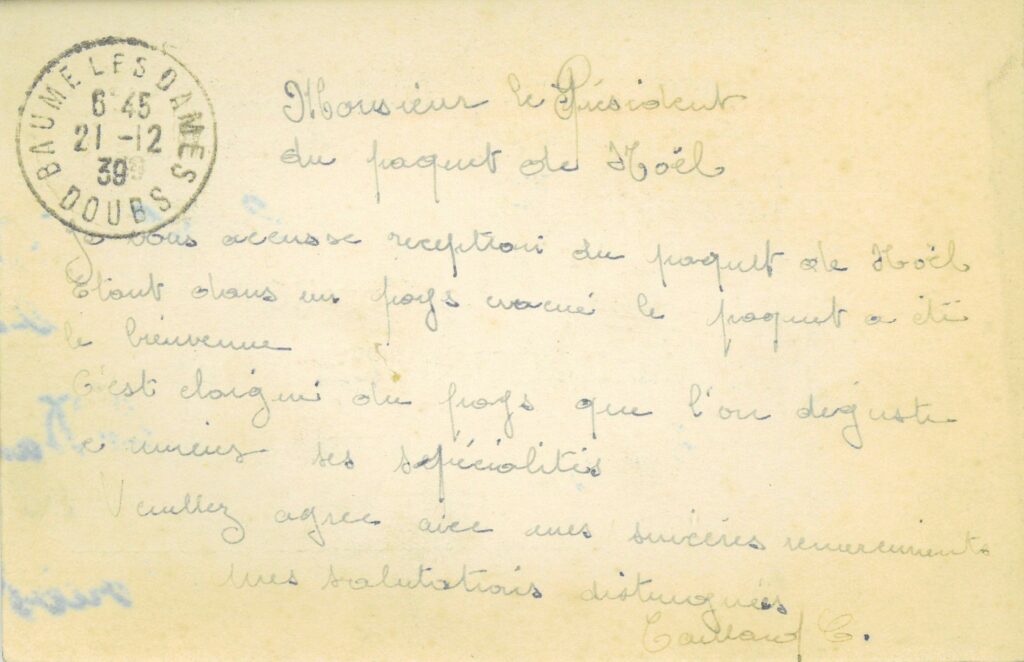 BAUME LES DAMES
6 45
21 -12
39
DOUBS
Monsieur le Président
du paquet de Noël
Je vous accusse reception du paquet de Noël
Etant dans un pays evacué le paquet a été
le bienvenue
C'est eloigné du pays que l'on deguste
le mieux ses spécialités
Veuillez agree avec mes sincéres remerciements
mes salutations distinguées
Taillard C.